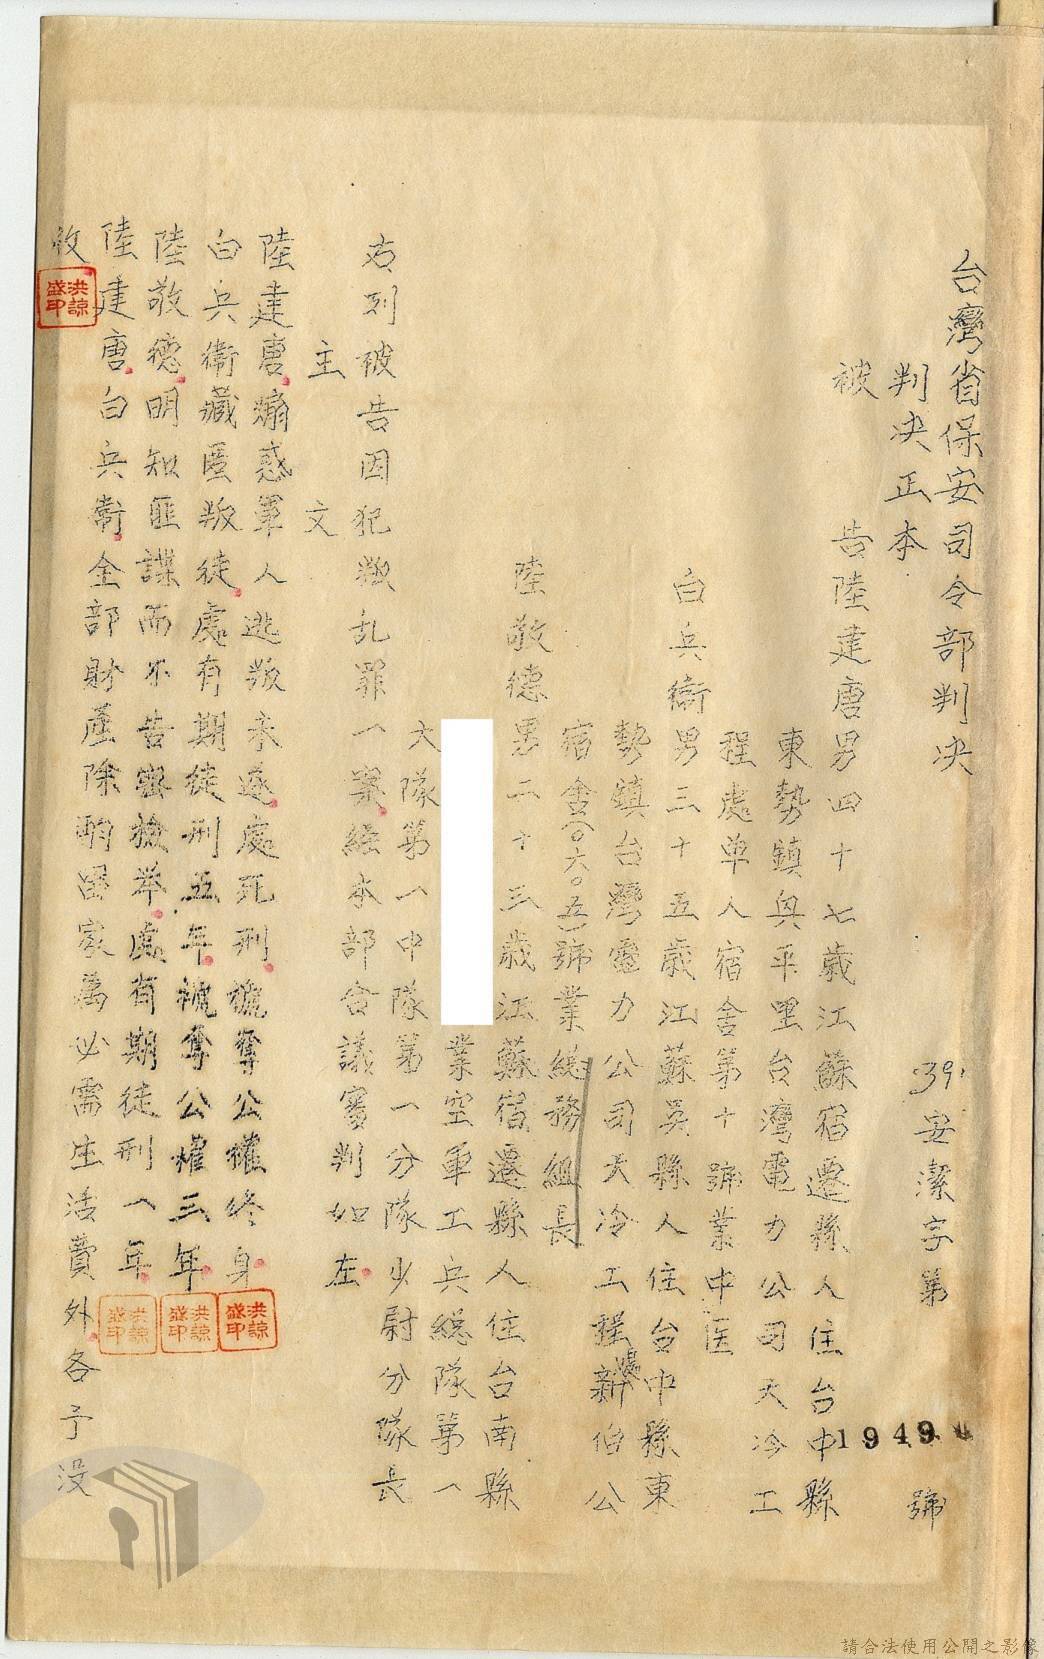 台灣省保安司令部判決
39安潔字第1949號
判決正本
被告陸建唐男四十七歲江蘇宿遷縣人住台中縣
東勢鎮興平里台灣電力公司大冷工
程處單人宿舍第十號業中医
白兵衛男三十五歲江蘇吳縣人住台中縣東
勢鎮台灣電力公司大冷工程新伯公
宿舍(0六0五)號業總務組長
陸敬德男二十三歲江蘇宿遷縣人住台南縣
業空軍工兵總隊第一
大隊第一中隊第一分隊少尉分隊長
右列被告因犯叛乱罪一案經本部合議審判如左
主文
陸建唐煽惑軍人逃叛未遂處死刑褫奪公權終身
白兵衛藏匿叛徒處有期徒刑五年褫奪公權三年
陸敬德明知匪諜而不告密檢举處有期徒刑一年
陸建唐白兵衛全部財產除酌留家屬必需生活費外各予沒
收
洪諒盛印
洪諒盛印
洪諒盛印
洪諒盛印
請合法使用公開之影像